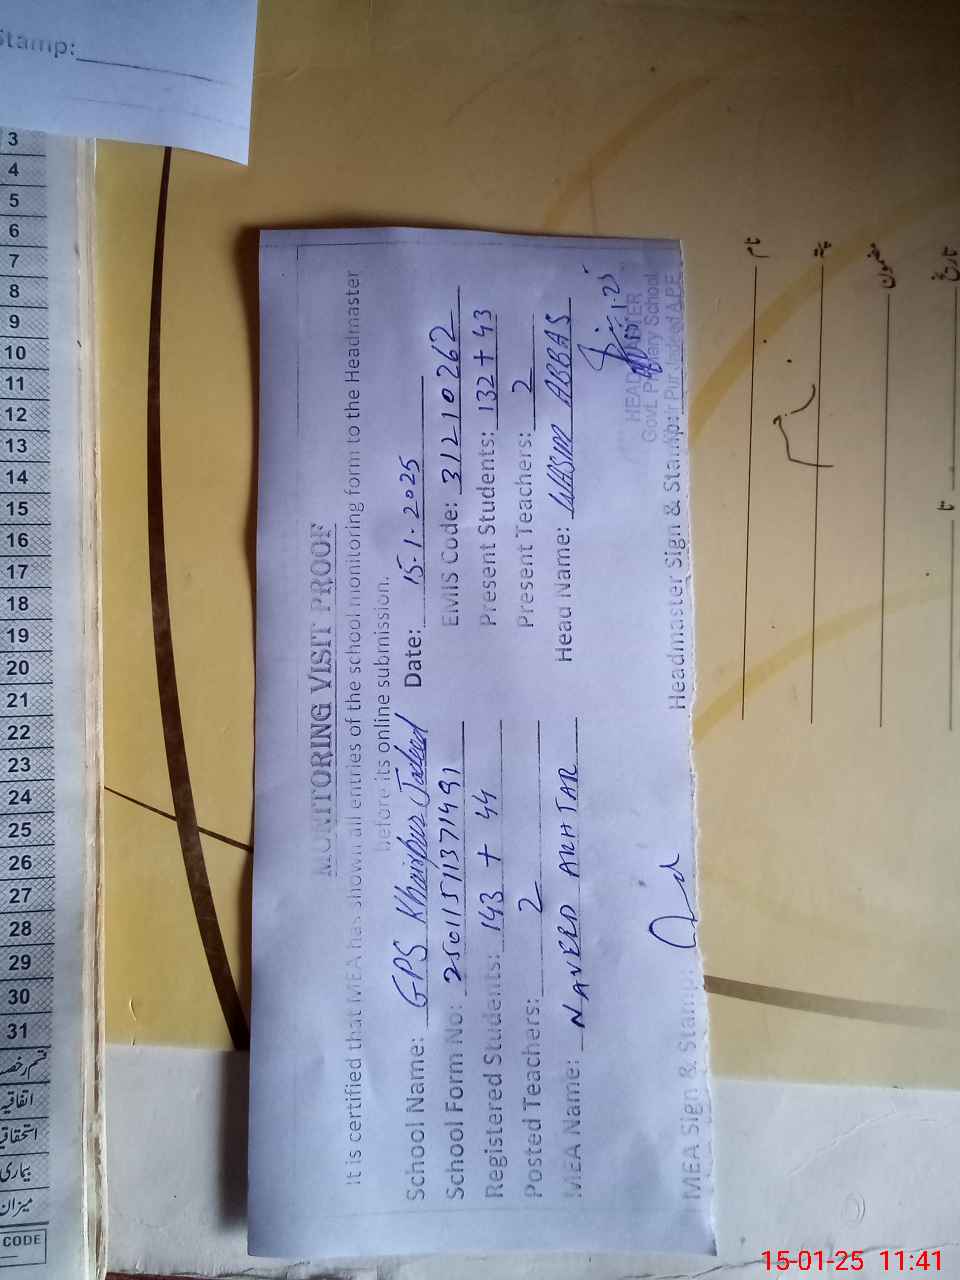 Stamp:
3
4
5
6
7
8
9
10
11
12
13
14
15
16
17
18
19
20
21
22
23
24
25
26
27
28
29
30
31
قسم رخصت
اتفاقیہ
استحقاقی
بیماری
میزان
CODE
MONITORING VISIT PROOF
It is certified that MEA has shown all entries of the school monitoring form to the Headmaster
before its online submission.
School Name: GPS Khairpur Jadeed Date: 15.1.2025
School Form No: 2501151137 1491 EMIS Code: 31210262
Registered Students: 143 + 44 Present Students: 132 + 43
Posted Teachers: 2 Present Teachers: 2
MEA Name: NAVEED AKHTAR Head Name: WASIM ABBAS
MEA Sign & Stamp: Headmaster Sign & Stamp:
HEADMASTER
Govt. Primary School
نام
پتہ
مضمون
تاریخ
تا
15-01-25 11:41